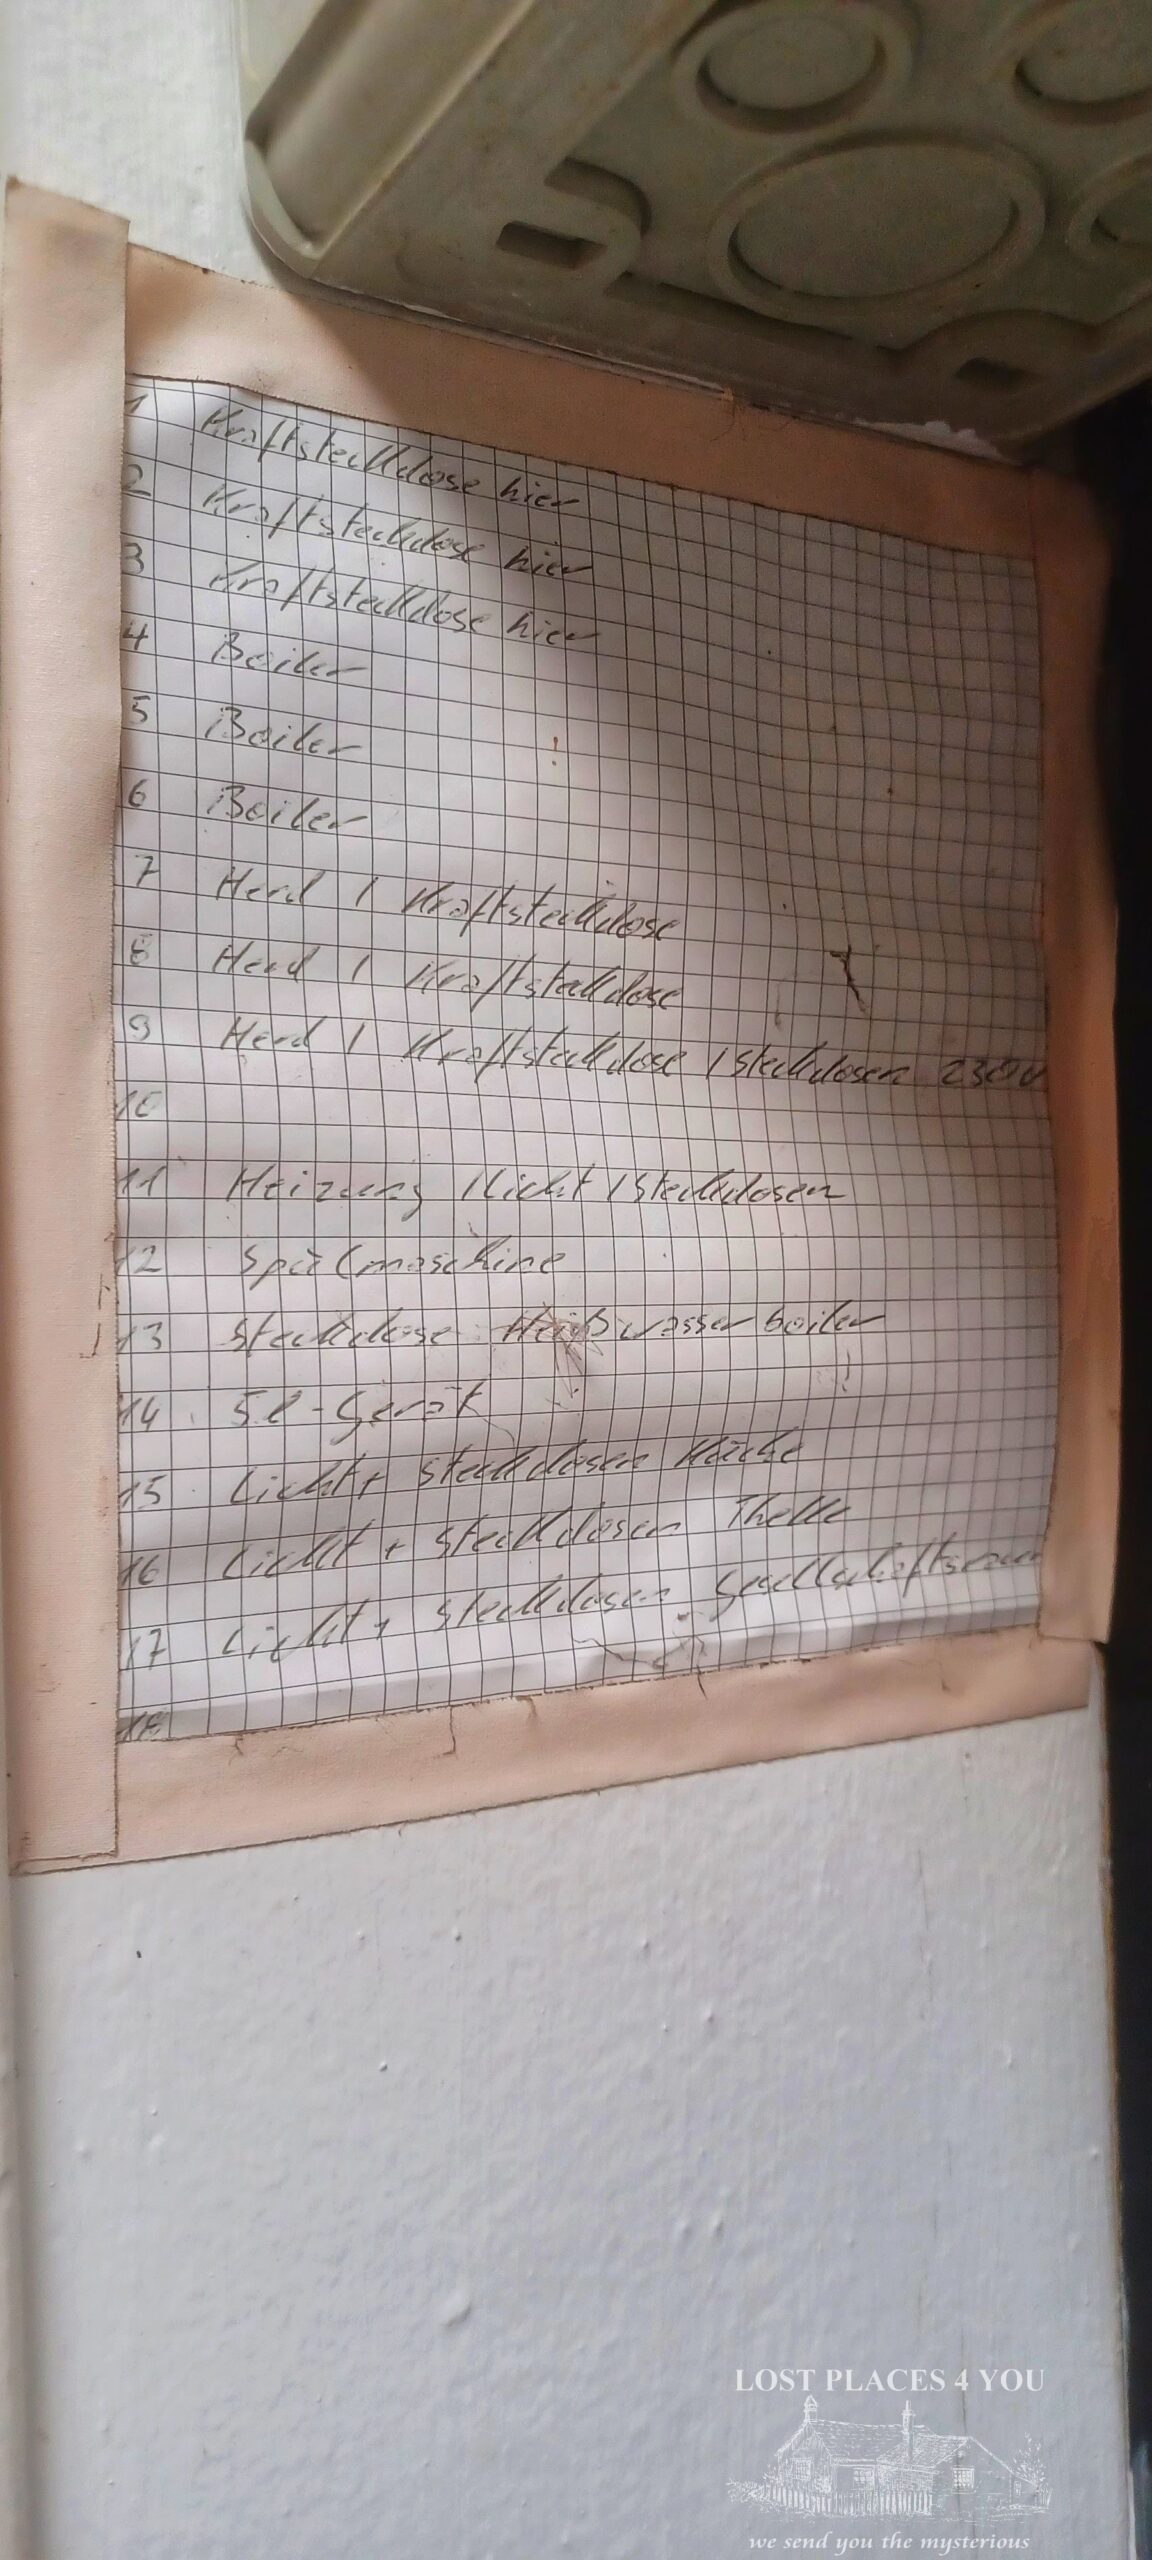 1 Kraftsteckdose hier
2 Kraftsteckdose hier
3 Kraftsteckdose hier
4 Boiler
5 Boiler
6 Boiler
7 Herd / Kraftsteckdose
8 Herd / Kraftsteckdose
9 Herd / Kraftsteckdose / Steckdosen 230V
10
11 Heizung / Licht / Steckdosen
12 Spülmaschine
13 Steckdose Heißwasserboiler
14 5l-Gerät
15 Licht + Steckdosen Küche
16 Licht + Steckdosen Theke
17 Licht + Steckdosen Gesellschaftsraum
18
LOST PLACES 4 YOU
we send you the mysterious